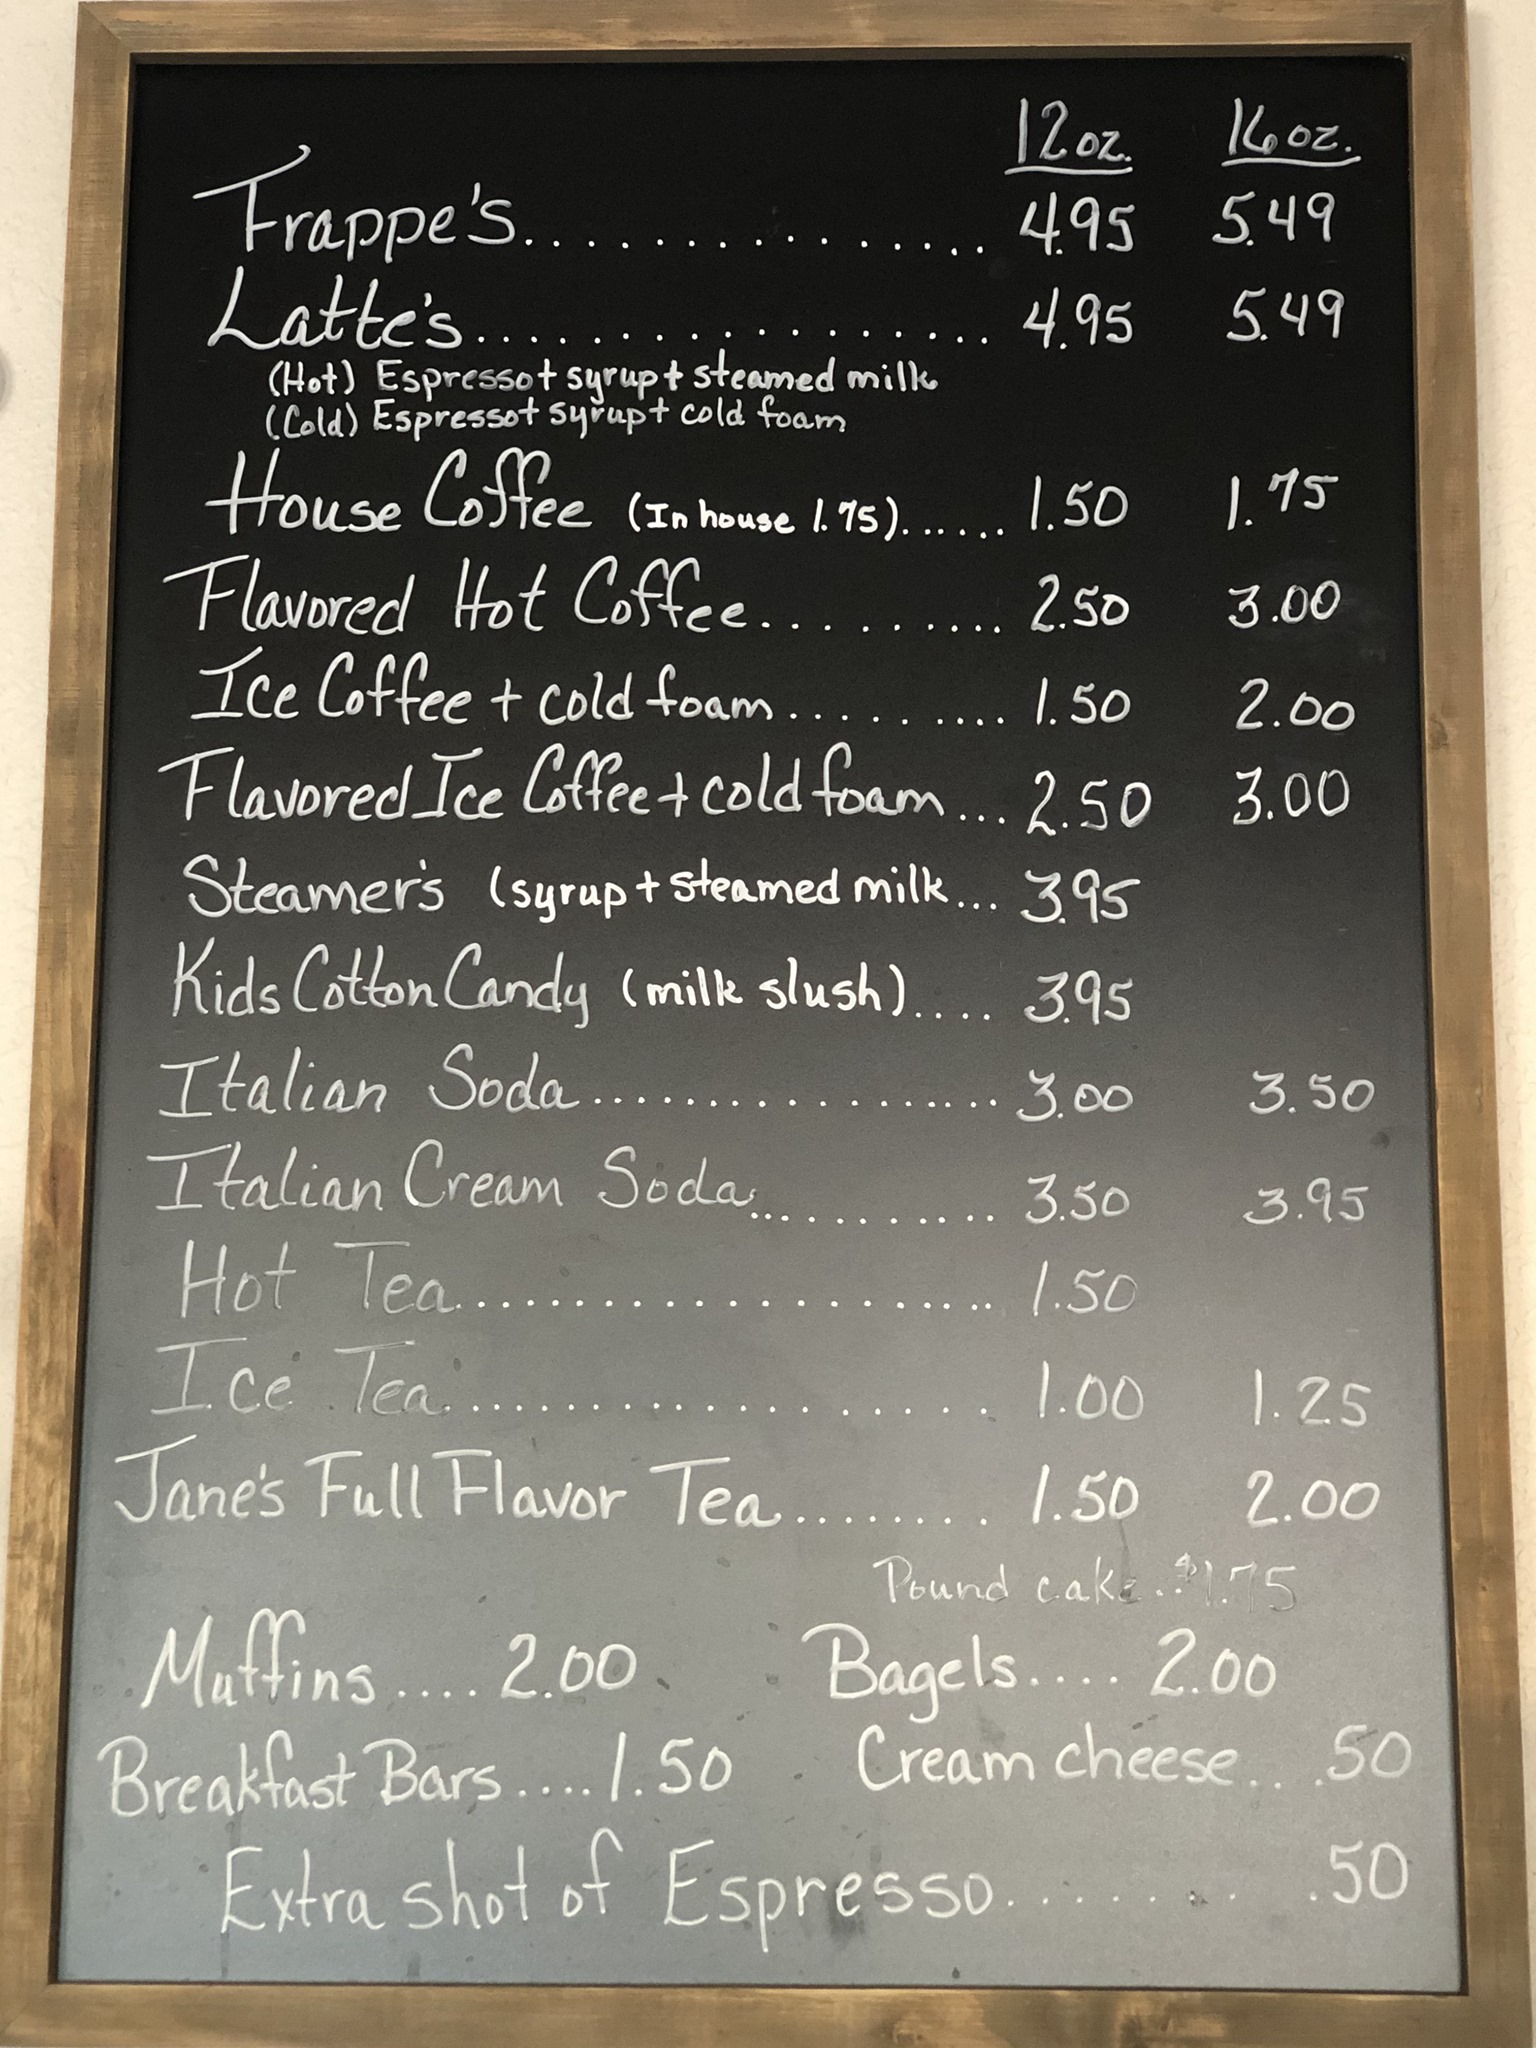 12oz. 16oz.
Frappe's................ 4.95 5.49
Latte's.................. 4.95 5.49
(Hot) Espresso+ syrup+ steamed milk
(Cold) Espresso+ syrup+ cold foam
House Coffee (In house 1.75)...... 1.50 1.75
Flavored Hot Coffee.......... 2.50 3.00
Ice Coffee + cold foam......... 1.50 2.00
Flavored Ice Coffee + cold foam... 2.50 3.00
Steamer's (syrup + steamed milk... 3.95
Kids Cotton Candy (milk slush).... 3.95
Italian Soda.................. 3.00 3.50
Italian Cream Soda........... 3.50 3.95
Hot Tea...................... 1.50
Ice Tea..................... 1.00 1.25
Jane's Full Flavor Tea........ 1.50 2.00
Pound cake..$1.75
Muffins....2.00 Bagels.... 2.00
Breakfast Bars....1.50 Cream cheese.. .50
Extra shot of Espresso........ .50